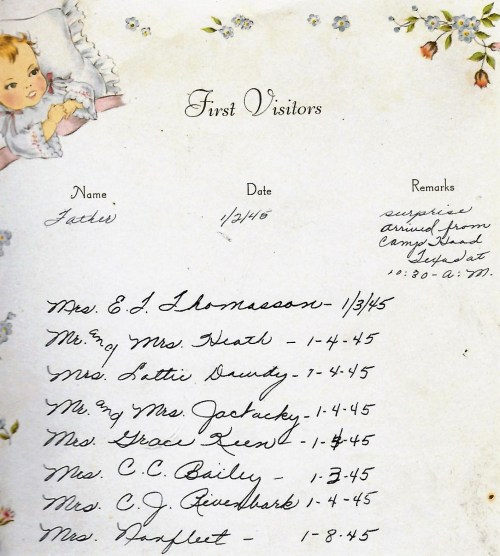 First Visitors
Name Date Remarks
Father 1/2/45 surprise
arrived from
Camp Hood
Texas at
10:30-A.M.
Mrs. E. J. Thomasson - 1/3/45
Mr. and Mrs. Heath - 1-4-45
Mrs. Lottie Dowdy - 1-4-45
Mr. and Mrs. - 1-4-45
Mrs. Grace Keen - 1-4-45
Mrs. C.C. Bailey - 1-3-45
Mrs. C. J. Rivenbark 1-4-45
Mrs. Norfleet - 1-8-45